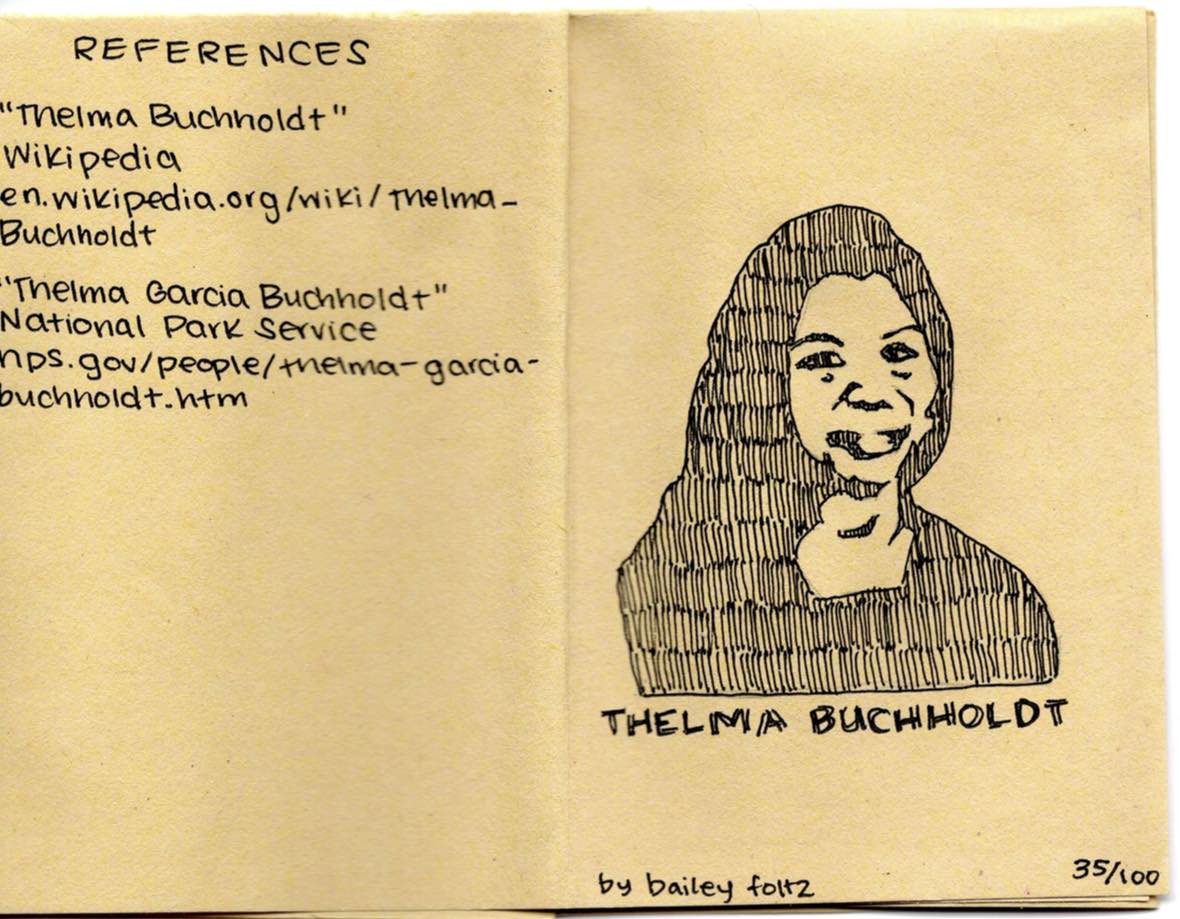 REFERENCES
"Thelma Buchholdt"
Wikipedia
en.wikipedia.org/wiki/Thelma_
Buchholdt
"Thelma Garcia Buchholdt"
National Park Service
nps.gov/people/thelma-garcia-
buchholdt.htm
THELMA BUCHHOLDT
by bailey foltz
35/100